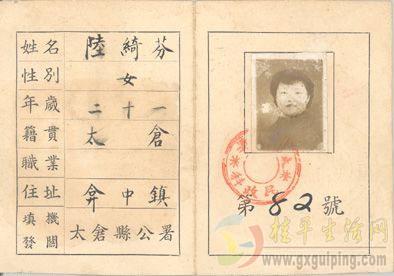 姓名 陸綺芬
性別 女
年歲 二十一
籍貫 太倉
職業
住址 弇中鎮
填發機關 太倉縣公署
第82號
桂平生活网
www.gxguiping.com